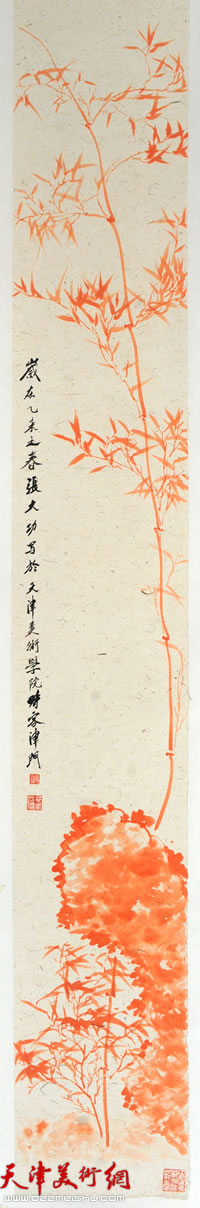 歲在乙未之春張大功写於天津美術學院時客津門
天津美術網
www.022meishu.com